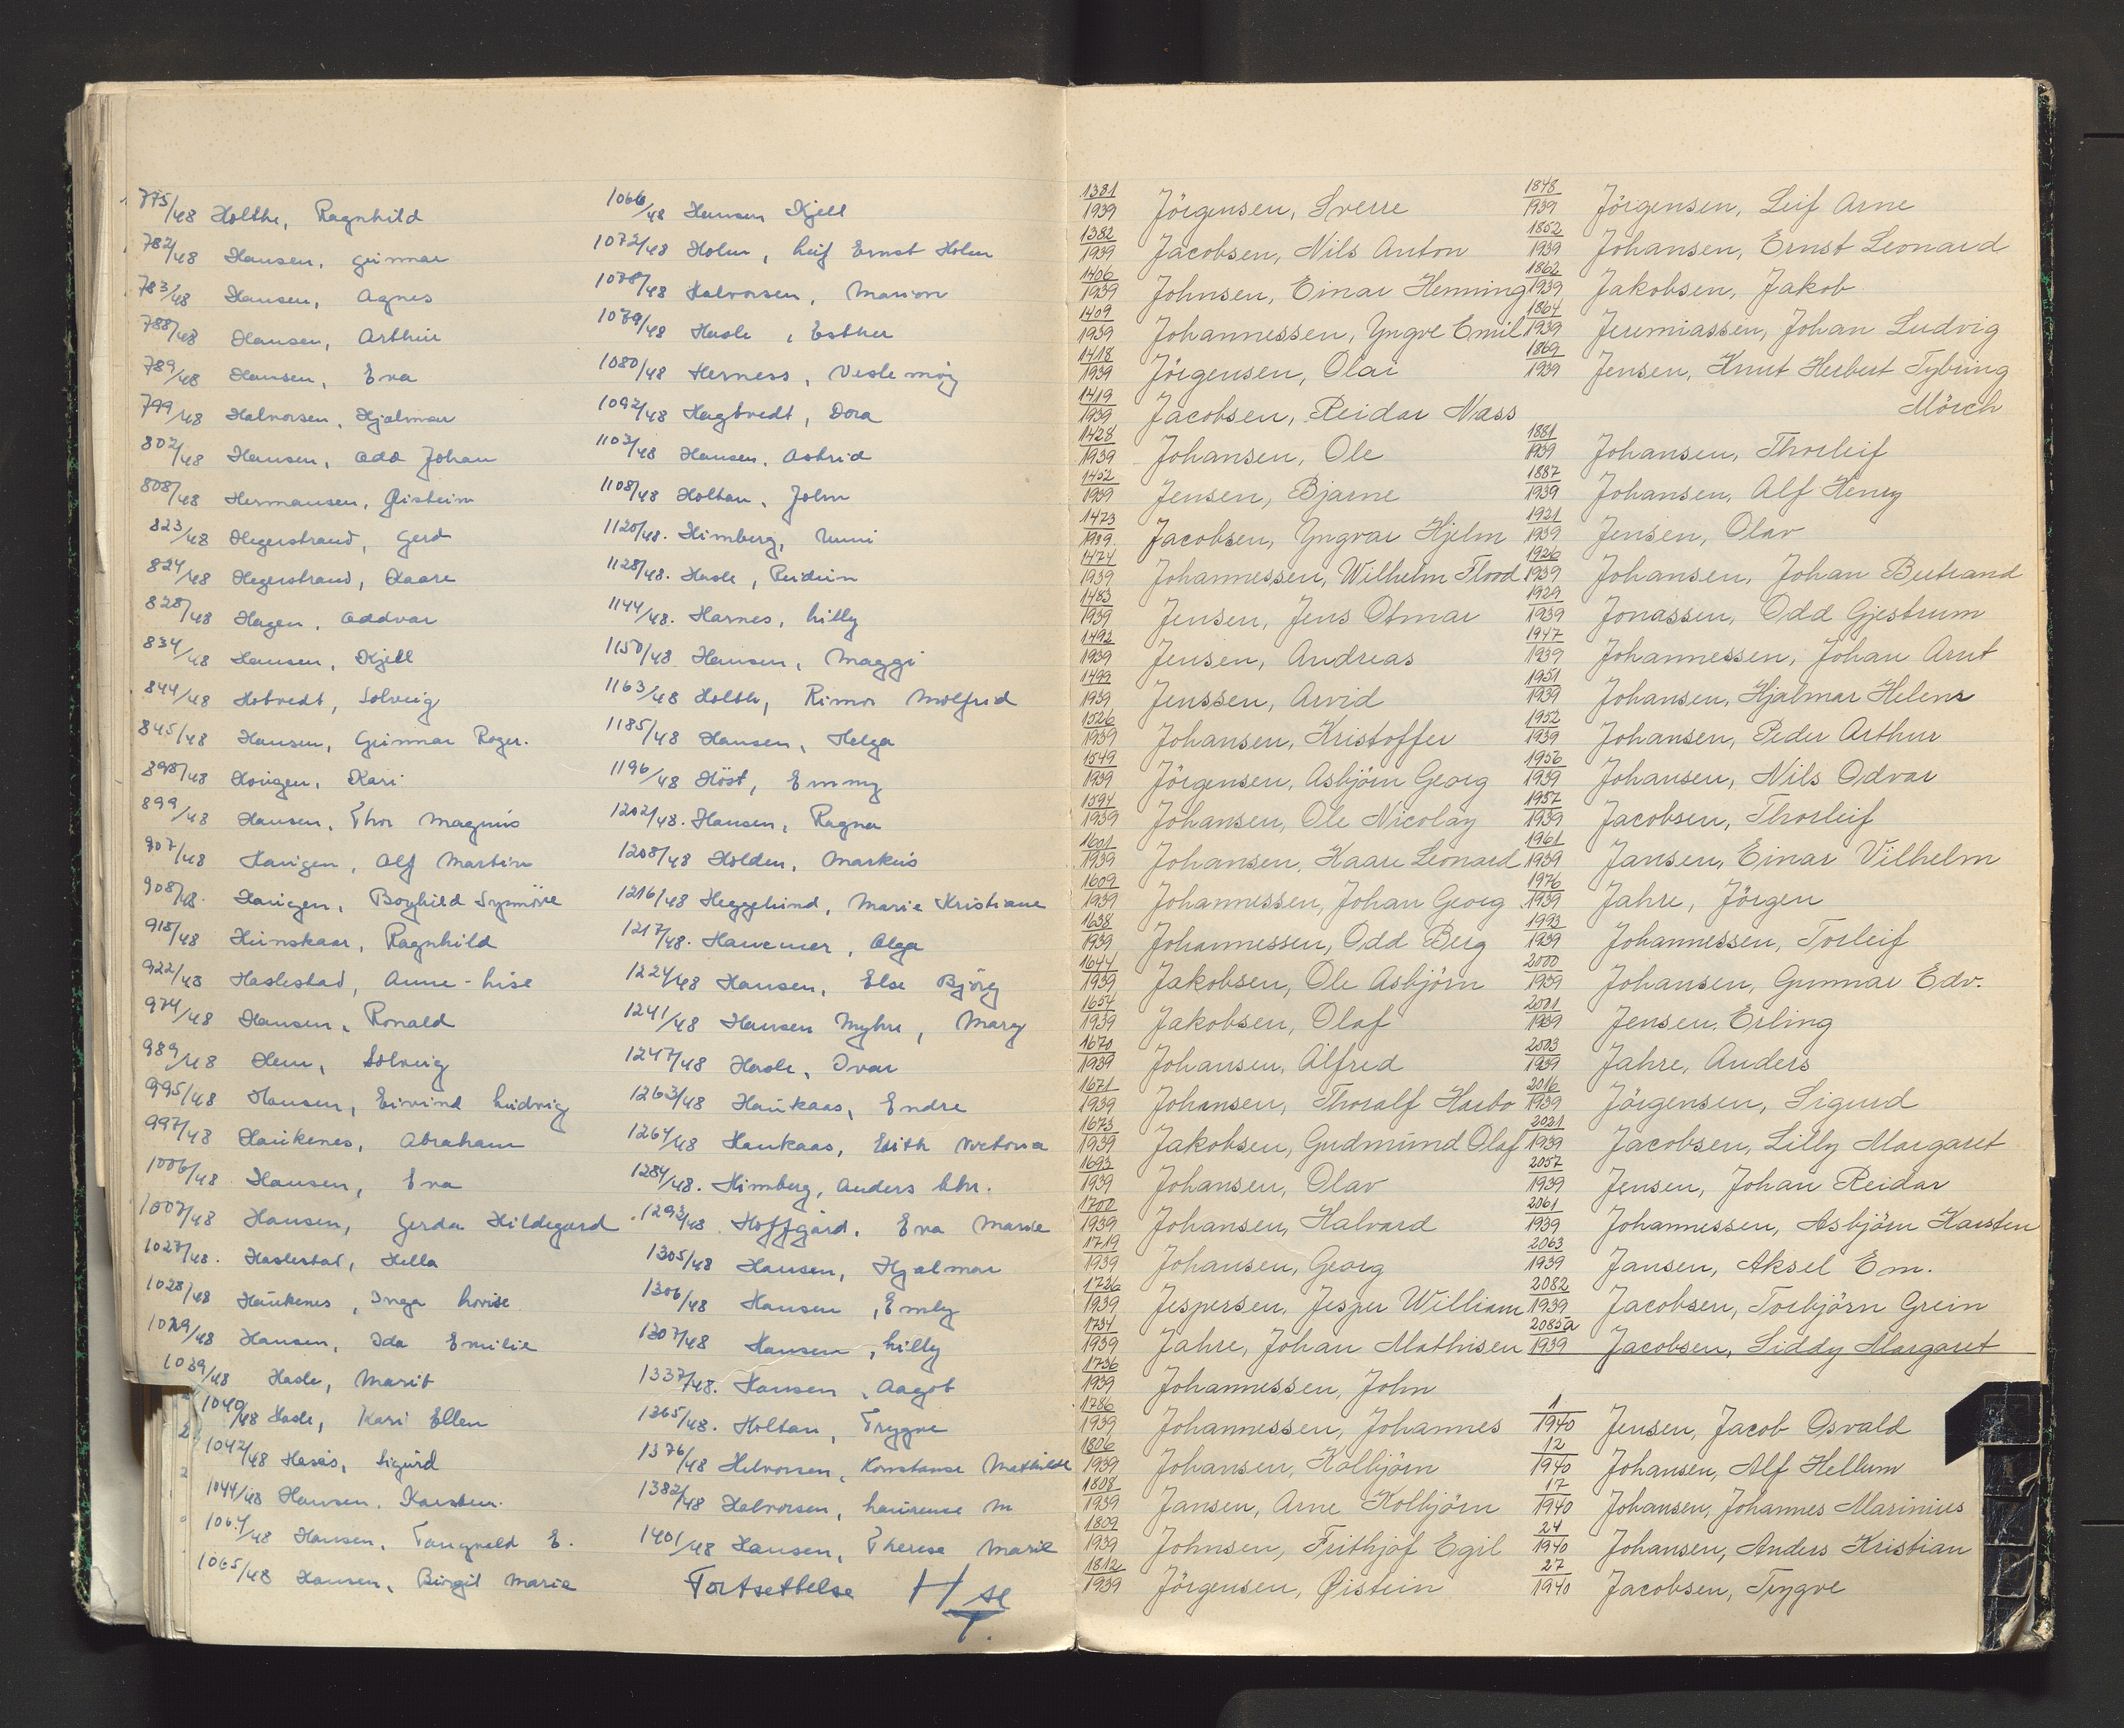 775/48 Holthe, Ragnhild
782/48 Hansen, Gunnar
783/48 Hansen, Agnes
788/48 Hansen, Arthur
789/48 Hansen, Eva
799/48 Halvorsen, Hjalmar
802/48 Hansen, Odd Johan
808/48 Hermansen, Øistein
823/48 Hegerstrand, Gerd
824/48 Hegerstrand, Kaare
828/48 Hagen, Oddvar
834/48 Hansen, Kjell
844/48 Hotvedt, Solveig
845/48 Hansen, Gunnar Roger.
898/48 Horigen, Kari
899/48 Hansen, Thor Magnus
907/48 Haugen, Alf Martin
908/48. Haugen, Borghild Synnöve
918/48 Hunskaar, Ragnhild
922/48 Haslestad, Anne-Lise
974/48 Hansen, Ronald
989/48 Hem, Solveig
995/48 Hansen, Eivind Ludvig
997/48 Haukenes, Abraham
1006/48 Hansen, Eva
1007/48 Hansen, Gerda Hildegard
1027/48. Haslestad, Hella
1028/48 Haukenes, Inga Lovise
1029/48 Hansen, Ida Emilie
1039/48 Hasle, Marit
1040/48 Hasle, Kari Ellen
1042/48 Hasås, Sigurd
1044/48 Hansen, Karsten.
1064/48 Hansen, Tangvald E.
1065/48 Hansen, Birgit Marie
1066/48 Hansen Kjell
1072/48 Holm, Leif Ernst Holm
1078/48 Halvorsen, Marion
1079/48 Hasle, Esther
1080/48 Herness, Veslemöy
1092/48 Hagtvedt, Dora
1103/48 Hansen, Astrid
1108/48 Holtan, John
1120/48. Himberg, Unni
1128/48. Hasle, Reidun
1144/48. Harnes, Lilly
1150/48 Hansen, Maggi
1163/48 Holth, Rimor Molfrid
1185/48 Hansen, Helga
1196/48 Höst, Emmy
1202/48. Hansen, Ragna
1208/48 Holden, Markus
1216/48 Heggelund, Marie Kristiane
1217/48. Hawemer, Olga
1224/48 Hansen, Else Björg
1241/48 Hansen Myhre, Mary
1247/48 Hasle, Ivar
1263/48 Haukaas, Endre
1264/48 Haukaas, Edith Victoria
1284/48. Himberg, Anders Chr.
1293/48. Hoffgård, Eva Marie
1305/48 Hansen, Hjalmar
1306/48 Hansen, Emly
1307/48 Hansen, Lilly
1337/48. Hansen, Aagot
1365/48. Holtan, Trygve
1376/48 Helvorsen, Konstanse Mathilde
1382/48 Halvorsen, Laurense M
1401/48 Hansen, Therese Marie
Fortsettelse H se
T.
1381/1939 Jörgensen, Sverre
1382/1939 Jacobsen, Nils Anton
1406/1939 Johnsen, Einar Henning
1409/1939 Johannessen, Yngve Emil
1418/1939 Jörgensen, Olai
1419/1939 Jacobsen, Reidar Nass
1428/1939 Johansen, Ole
1452/1939 Jensen, Bjarne
1473/1939 Jacobsen, Yngvar Hjelm
1474/1939 Johannessen, Wilhelm Flood
1483/1939 Jensen, Jens Otmar
1492/1939 Jensen, Andreas
1499/1939 Jenssen, Arvid
1526/1939 Johansen, Kristoffer
1549/1939 Jörgensen, Asbjörn Georg
1594/1939 Johansen, Ole Nicolay
1601/1939 Johansen, Kaare Leonard
1609/1939 Johannessen, Johan Georg
1638/1939 Johannessen, Odd Berg
1644/1939 Jakobsen, Ole Asbjörn
1654/1939 Jakobsen, Olaf
1670/1939 Johansen, Alfred
1671/1939 Johansen, Thoralf Harbo
1673/1939 Jakobsen, Gudmund Olaf
1693/1939 Johansen, Olav
1700/1939 Johansen, Halvard
1719/1939 Johansen, Georg
1726/1939 Jespersen, Jesper William
1734/1939 Jahre, Johan Mathisen
1736/1939 Johannessen, John
1786/1939 Johannessen, Johannes
1806/1939 Johansen, Kolbjörn
1808/1939 Jansen, Arne Kolbjörn
1809/1939 Johnsen, Frithjof Egil
1812/1939 Jörgensen, Øistein
1848/1939 Jörgensen, Leif Arne
1852/1939 Johansen, Ernst Leonard
1862/1939 Jakobsen, Jakob
1864/1939 Jeremiassen, Johan Ludvig
1869/1939 Jensen, Knut Herbert Tybring
Mörch
1881/1939 Johansen, Thorleif
1887/1939 Johansen, Alf Henry
1921/1939 Jensen, Olav
1926/1939 Johansen, Johan Bertrand
1929/1939 Jonassen, Odd Gjestrum
1947/1939 Johannessen, Johan Arnt
1951/1939 Johansen, Hjalmar Helenr
1952/1939 Johansen, Peder Arthur
1956/1939 Johansen, Nils Odvar
1957/1939 Jacobsen, Thorleif
1961/1939 Jansen, Einar Vilhelm
1976/1939 Jahre, Jörgen
1993/1939 Johannessen, Torleif
2000/1939 Johansen, Gunnar Edv.
2001/1939 Jensen, Erling
2003/1939 Jahre, Anders
2016/1939 Jörgensen, Sigurd
2021/1939 Jacobsen, Lilly Margaret
2057/1939 Jensen, Johan Reidar
2061/1939 Johannessen, Asbjörn Karsten
2063/1939 Jansen, Aksel Em.
2082/1939 Jacobsen, Torbjörn Grein
2085a/1939 Jacobsen, Siddy Margaret
1/1940 Jensen, Jacob Osvald
12/1940 Johansen, Alf Hellum
17/1940 Johansen, Johannes Marinius
24/1940 Johansen, Anders Kristian
27/1940 Jacobsen, Trygve